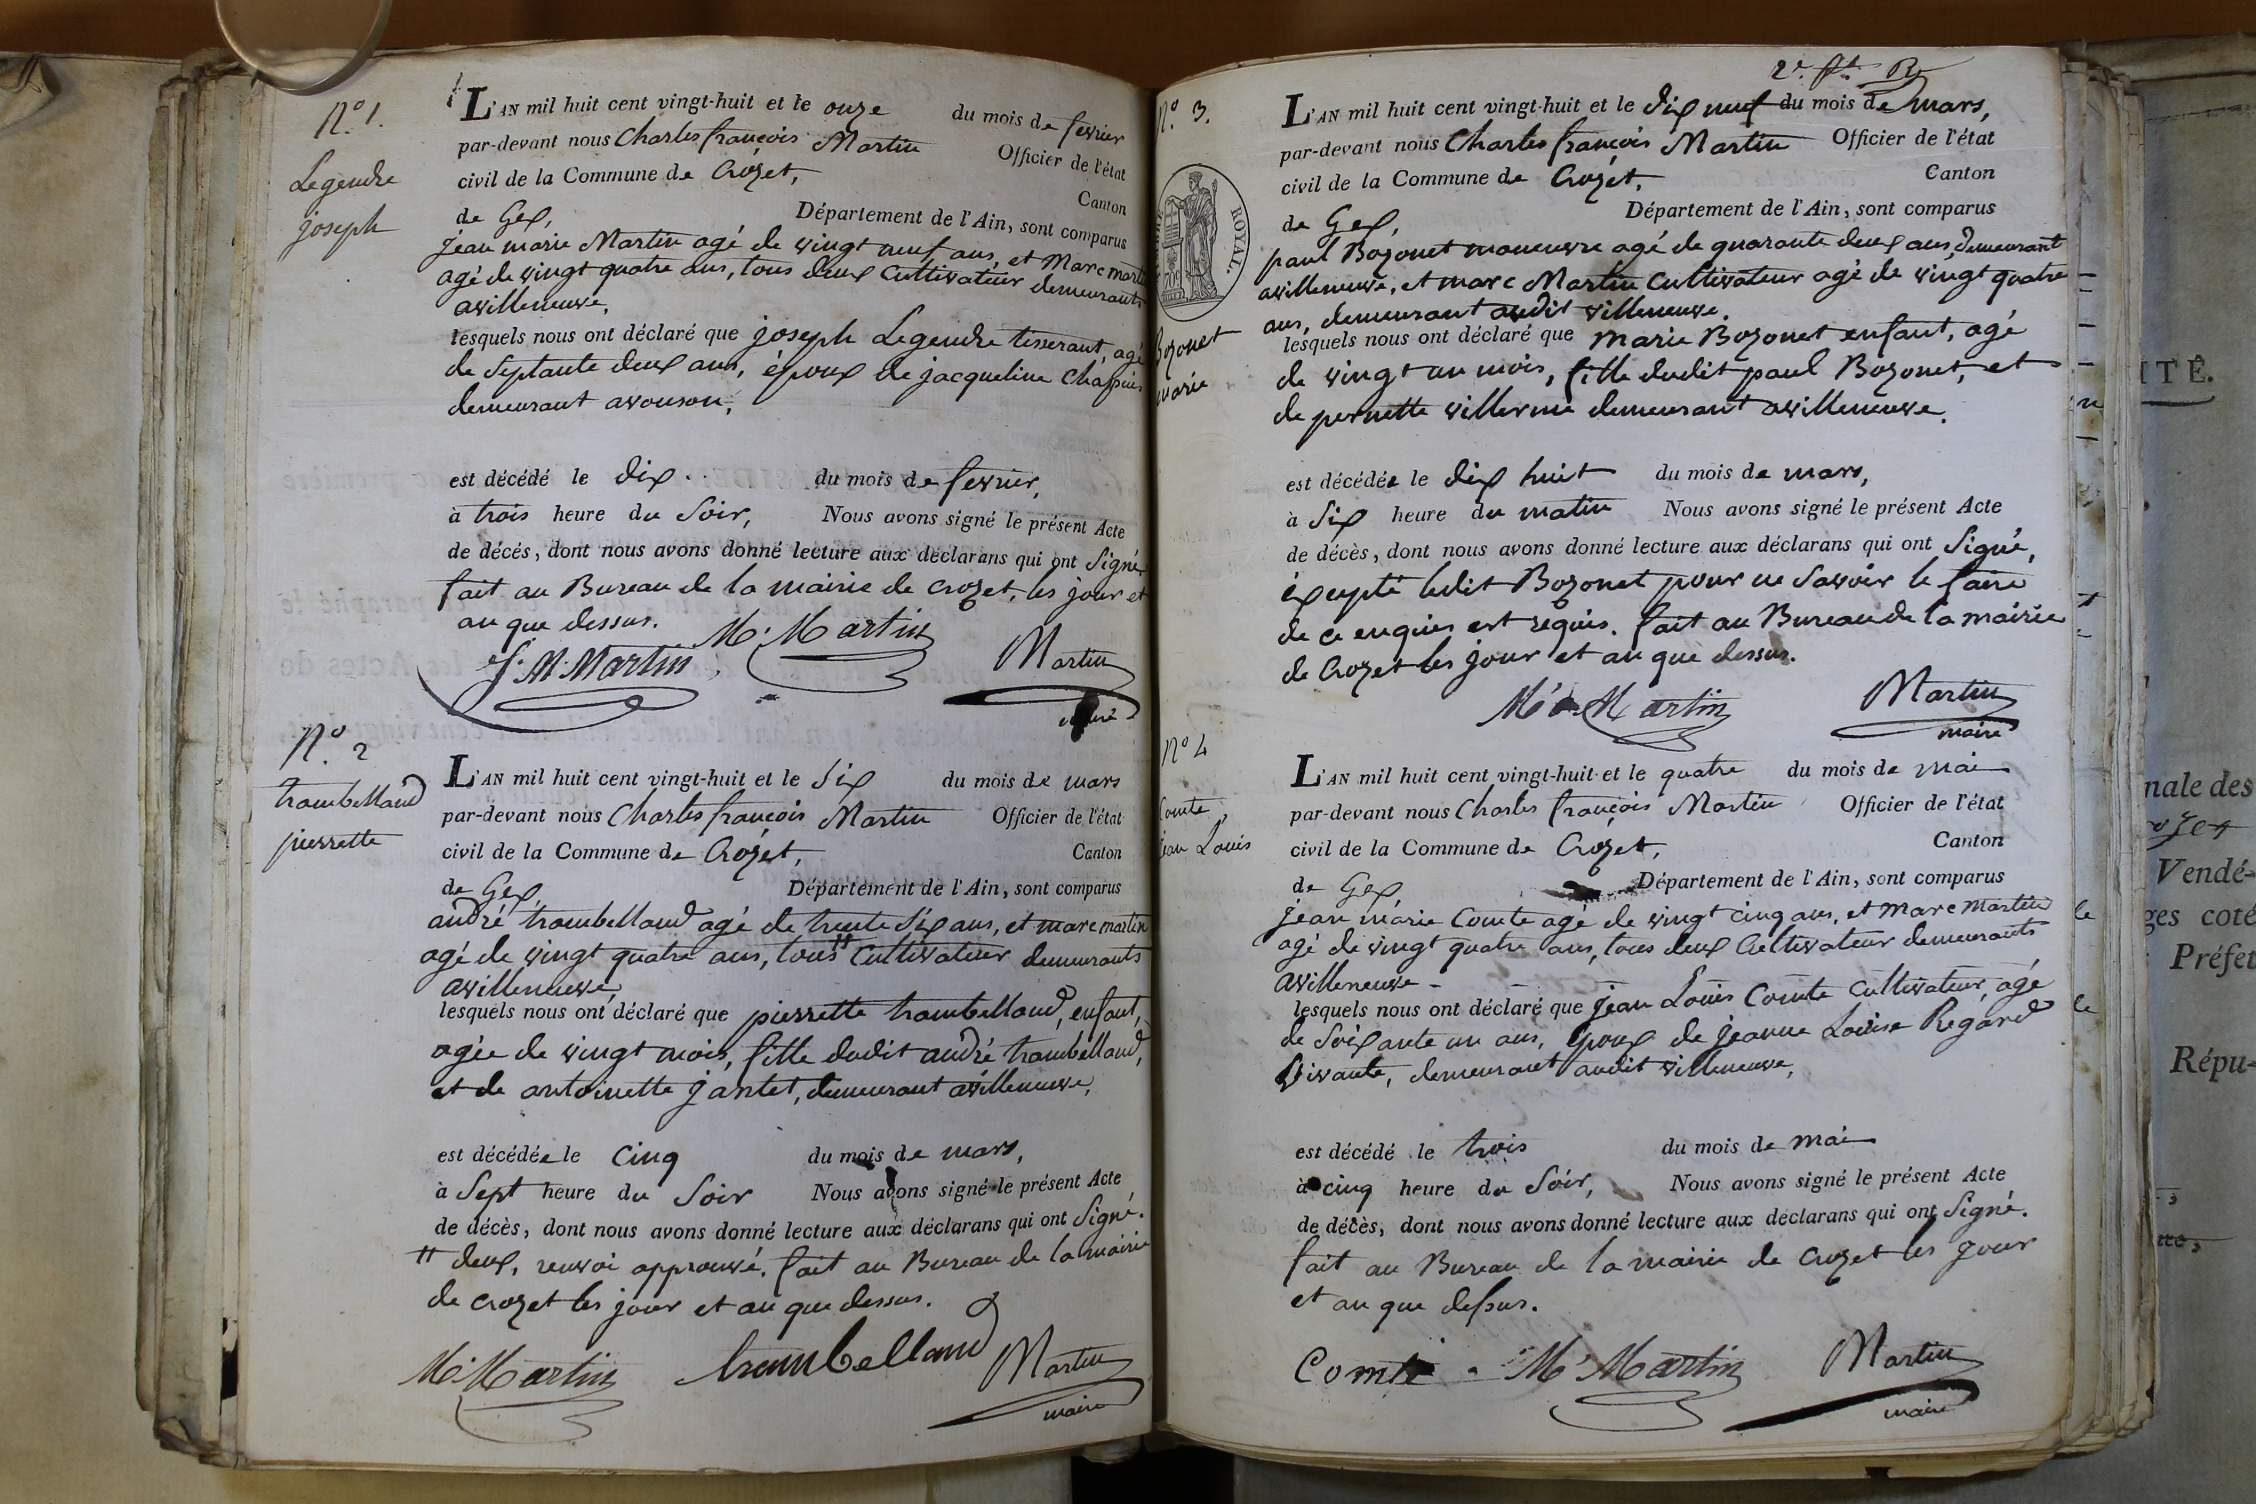 N.° 1.
Legendre
joseph
L'AN mil huit cent vingt-huit et le onze du mois de fevrier
par-devant nous Charles françois Martin Officier de l'état
civil de la Commune de Crozet, Canton
de Gex, Département de l'Ain, sont comparus
jean marie Martin agé de vingt neuf ans, et Marc martin
agé de vingt quatre ans, tous deux Cultivateur demeurants
avilleneuve,
lesquels nous ont déclaré que joseph Legendre tisserant, agé
de septante deux ans, époux de jacqueline Chapuis
demeurant avouson,
est décédé le dix du mois de fevrier,
à trois heure du Soir, Nous avons signé le présent Acte
de décés, dont nous avons donné lecture aux déclarans qui ont Signé,
fait au Bureau de la mairie de crozet, les jour et
an que dessus.
M. Martin
J. M. Martin
Martin
maire
N.° 2
trambelland
pierrette
L'AN mil huit cent vingt-huit et le Six du mois de mars
par-devant nous Charles françois Martin Officier de l'état
civil de la Commune de Crozet, Canton
de Gex, Département de l'Ain, sont comparus
andré trambelland agé de trente Six ans, et marc martin
agé de vingt quatre ans, tous # Cultivateur demeurants
avilleneuve,
lesquels nous ont déclaré que pierrette trambelland, enfant,
agée de vingt mois, fille dudit andré trambelland,
et de antoinette jantet, demeurant avilleneuve,
est décédée le Cinq du mois de mars,
à Sept heure du Soir Nous avons signé le présent Acte
de décès, dont nous avons donné lecture aux déclarans qui ont Signé.
# deux, renvoi approuvé. fait au Bureau de la mairie
de crozet les jour et an que dessus.
M. Martin trambelland Martin
maire
N.° 3.
TIMBRE ROYAL.
Bozonet
marie
L'AN mil huit cent vingt-huit et le dix neuf du mois de mars,
par-devant nous Charles françois Martin Officier de l'état
civil de la Commune de Crozet, Canton
de Gex, Département de l'Ain, sont comparus
paul Bozonet maneuvre agé de quarante deux ans, demeurant
avilleneuve, et marc Martin Cultivateur agé de vingt quatre
ans, demeurant audit villeneuve.
lesquels nous ont déclaré que marie Bozonet enfant, agé
de vingt un mois, fille dudit paul Bozonet, et
de pernette villerme demeurant avilleneuve.
est décédée le dix huit du mois de mars,
à Six heure du matin Nous avons signé le présent Acte
de décès, dont nous avons donné lecture aux déclarans qui ont Signé,
éxcepté ledit Bozonet pour ne Savoir le faire
de ce enquis est requis. fait au Bureau de la mairie
de Crozet les jour et an que dessus.
M. Martin Martin
maire
N.° 4
Comte
jean Louis
L'AN mil huit cent vingt-huit et le quatre du mois de mai
par-devant nous Charles françois Martin Officier de l'état
civil de la Commune de Crozet, Canton
de Gex Département de l'Ain, sont comparus
jean marie Comte agé de vingt cinq ans, et Marc Martin
agé de vingt quatre ans, tous deux Cultivateur demeurants
avilleneuve
lesquels nous ont déclaré que jean Louis Comte Cultivateur, agé
de Soixante un ans, époux de jeanne Louise Regard
vivante, demeurant audit villeneuve,
est décédé le trois du mois de mai
à cinq heure du Soir, Nous avons signé le présent Acte
de décès, dont nous avons donné lecture aux déclarans qui ont Signé.
fait au Bureau de la mairie de Crozet les jour
et an que dessus.
Comte M. Martin Martin
maire
ITÉ.
nale des
Vendé-
ges coté
Préfet
Répu-